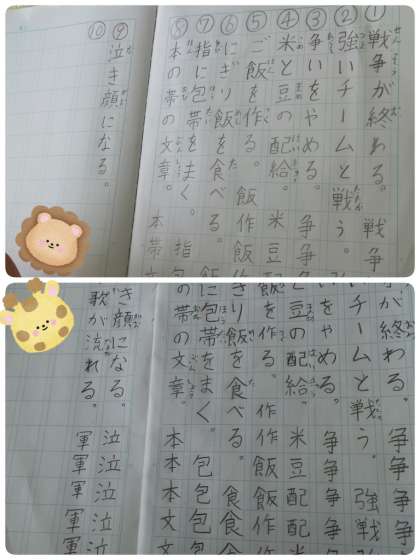 ①戦争が終わる。 戦争
②強いチームと戦う。
③争いをやめる。 争争
④米と豆の配給。 米豆
⑤ご飯を作る。 飯作
⑥にぎり飯を食べる。 飯
⑦指に包帯をまく。 指
⑧本の帯の文章。 本
⑨泣き顔になる。
⑩
が終わる。
チームと戦う。 強戦
をやめる。 争争争
豆の配給。 米豆配
飯を作る。 作飯飯作
ぎり飯を食べる。 食飯食
包帯をまく。 包包包
の帯の文章。 本本文文
き顔になる。 泣泣泣泣
歌が流れる。 軍軍軍軍